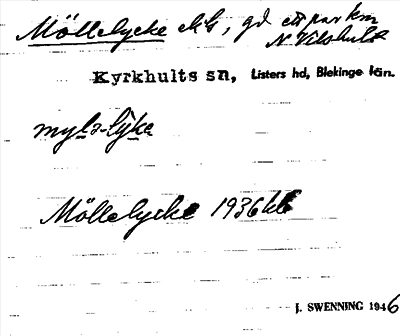 Möllelycke ekl, gd ett par km
N Vilshult
Kyrkhults sn, Listers hd, Blekinge län.
mylə-lykə
Möllelycke 1936 kb
J. SWENNING 1946